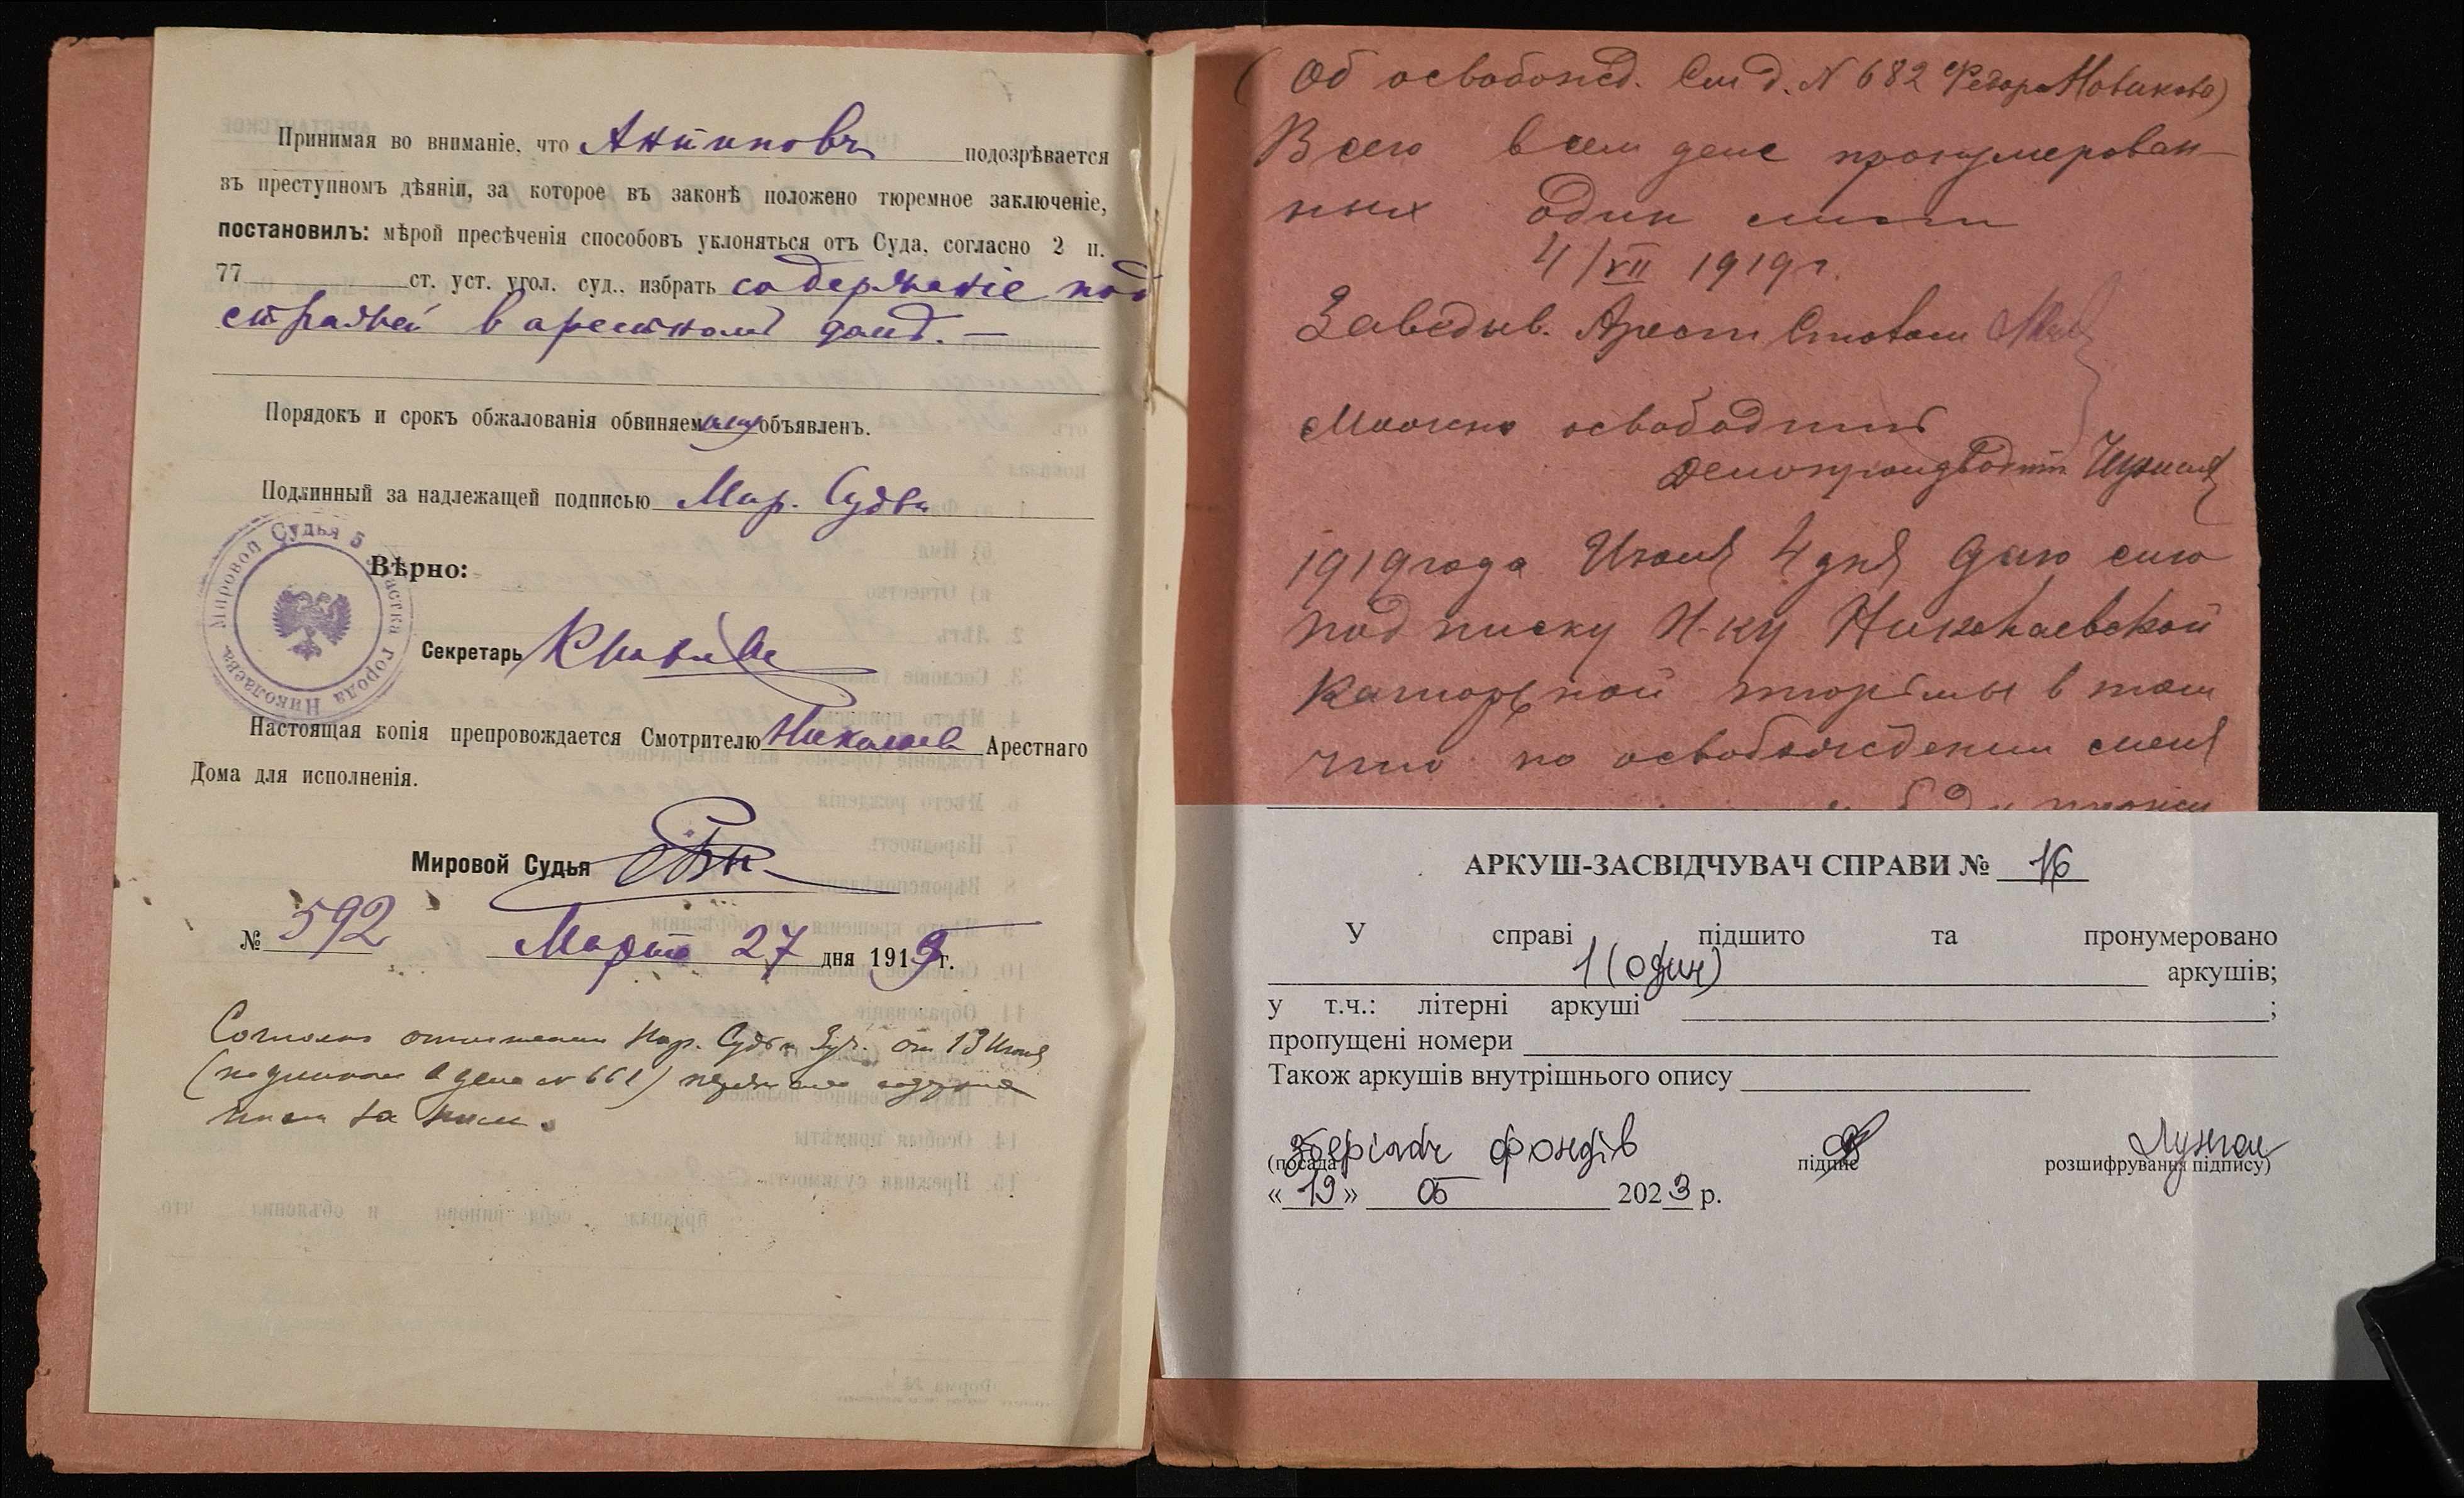 Принимая во вниманіе, что Антиповъ подозрѣвается
въ преступномъ дѣяніи, за которое въ законѣ положено тюремное заключеніе,
постановилъ: мѣрой пресѣченія способовъ уклоняться отъ Суда, согласно 2 п.
77 ст. уст. угол. суд., избрать содержаніе под
стражей в арестном домѣ. —
Порядокъ и срокъ обжалованія обвиняемому объявленъ.
Подлинный за надлежащей подписью Мир. Судьи
Мировой Судья 5 участка города Николаева
Вѣрно:
Секретарь
Настоящая копія препровождается Смотрителю Николаев Арестнаго
Дома для исполненія.
Мировой Судья
№ 592 Марта 27 дня 1919 г.
Согласно отношения Нар. Судьи от 13 Июня
(подлинное в деле № 661)
за ним.
(Об освобожд. См д. № 682 Федора Новикова)
Всего в сем деле пронумерован-
ных один лист
4/VII 1919 г.
Заведыв. Арест Столом
Можно освободить
Делопроизводит
1919 года Июля 4 дня даю сию
подписку Н-ку Николаевской
Каторжной тюрьмы в том
что по освобождении меня
АРКУШ-ЗАСВІДЧУВАЧ СПРАВИ № 16
У справі підшито та пронумеровано
1 (один) аркушів;
у т.ч.: літерні аркуші ;
пропущені номери
Також аркушів внутрішнього опису
зберігач фондів Лунган
(посада) підпис розшифрування підпису)
« 19 » 05 2023 р.